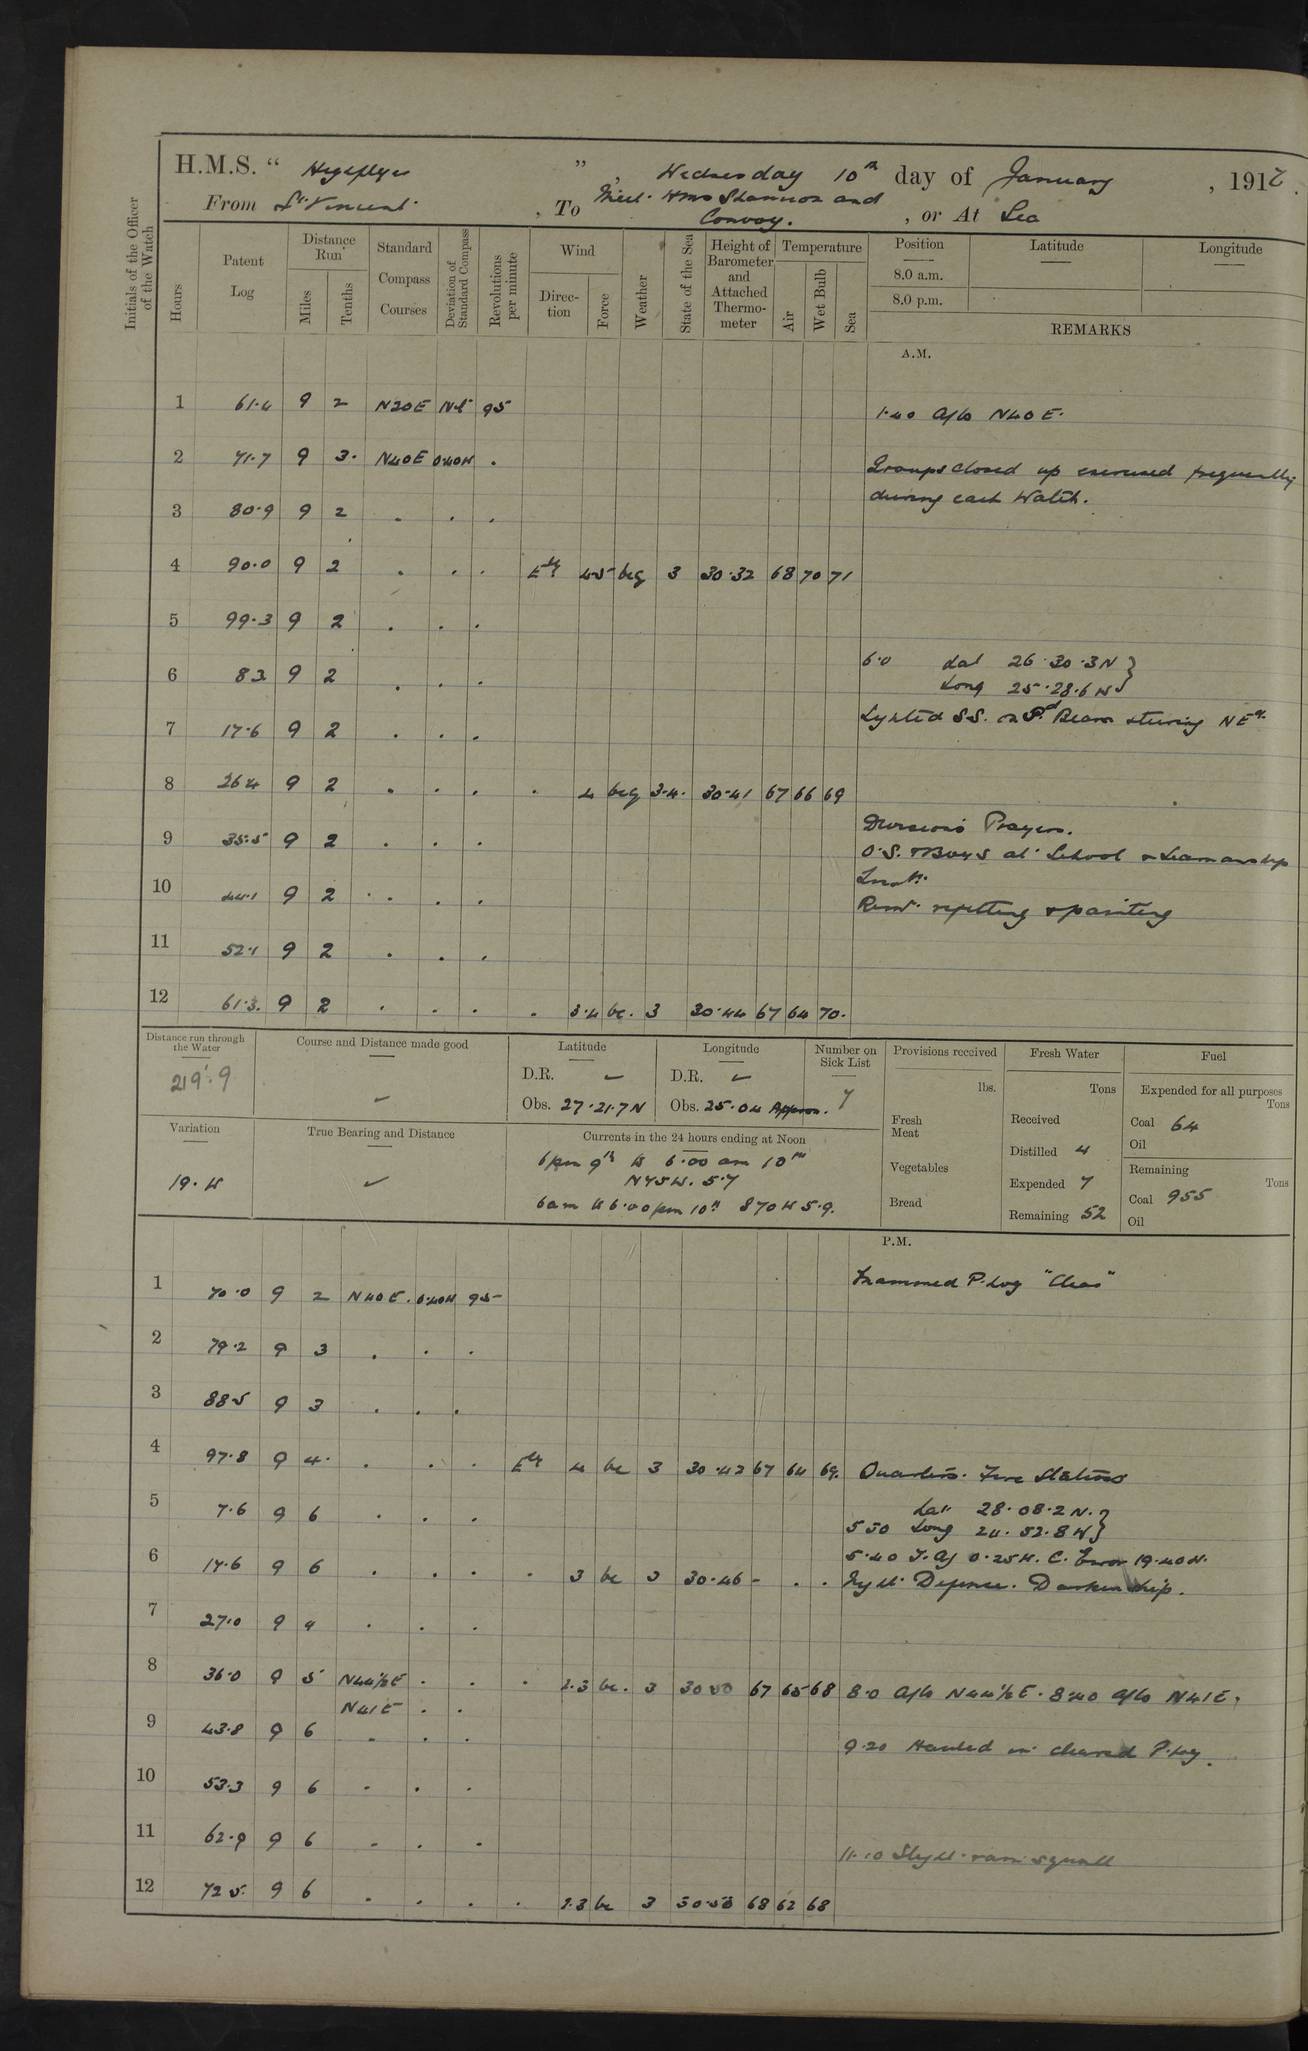 H.M.S. " Highflyer ", Wednesday 10th day of January, 1917.
From St Vincent, To Meet HMS Shannon and Convoy., or At Sea
Initials of the Officer of the Watch
Hours
Patent Log
Distance Run
Miles
Tenths
Standard Compass Courses
Deviation of Standard Compass
Revolutions per minute
Wind
Direction
Force
Weather
State of the Sea
Height of Barometer and Attached Thermometer
Temperature
Air
Wet Bulb
Sea
Position
Latitude
Longitude
8.0 a.m.
8.0 p.m.
REMARKS
A.M.
1 61.4 9 2 N20E Nil 95 1.40 a/co N40E.
2 71.7 9 3. N40E 0.40W .
Groups closed up exercised frequently
during each Watch.
3 80.9 9 2 . . .
4 90.0 9 2 . . . Ely 4.5 bcg 3 30.32 68 70 71
5 99.3 9 2 . . .
6 8.3 9 2 . . . 6.0 Lat 26.30.3N }
Long 25.28.6W }
7 17.6 9 2 . . . Sighted S.S. on Pd Beam steering NEly
8 26.4 9 2 . . . . 4 bcg 3.4. 30.41 67 66 69
9 35.5 9 2 . . . Divisions Prayers.
O.S. & Boys at School & Seamanship
10 44.1 9 2 . . . Instn.
Remr. refitting & painting
11 52.1 9 2 . . .
12 61.3. 9 2 . . . . 3.4 bc. 3 30.44 67 64 70.
Distance run through the Water
219.9
Course and Distance made good
Latitude
D.R.
Obs. 27.21.7N
Longitude
D.R.
Obs. 25.04 Approx.
Number on Sick List
7
Provisions received
lbs.
Fresh Meat
Vegetables
Bread
Fresh Water
Tons
Received
Distilled 4
Expended 7
Remaining 52
Fuel
Expended for all purposes
Tons
Coal 64
Oil
Remaining
Tons
Coal 955
Oil
Variation
19.W
True Bearing and Distance
Currents in the 24 hours ending at Noon
6pm 9th to 6.00 am 10th
N75W. 5.7
6am to 6.00pm 10th S70W 5.9.
P.M.
1 70.0 9 2 N40E. 0.40W 95 Examined P.Log "Clear"
2 79.2 9 3 . . .
3 88.5 9 3 . . .
4 97.8 9 4. . . . Ely 4 bc 3 30.42 67 64 69. Quarters. Fire Stations
5 7.6 9 6 . . . Lat 28.08.2N. }
5 50 Long 24.52.8W }
6 17.6 9 6 . . . . 3 bc 3 30.46 - . . 5.40 0.25W. C. Error 19.40W.
Night Defence. Darken ship.
7 27.0 9 4 . . .
8 36.0 9 5 N44½E . . . 2.3 bc. 3 30.50 67 65 68 8.0 a/co N44½E. 8.40 a/co N41E.
N41E . .
9 43.8 9 6 . . . 9.20 Hauled in cleared P.Log.
10 53.3 9 6 . . .
11 62.9 9 6 . . . 11.10 Slight rain squall
12 72.5. 9 6 . . . . 2.3 bc 3 30.50 68 62 68